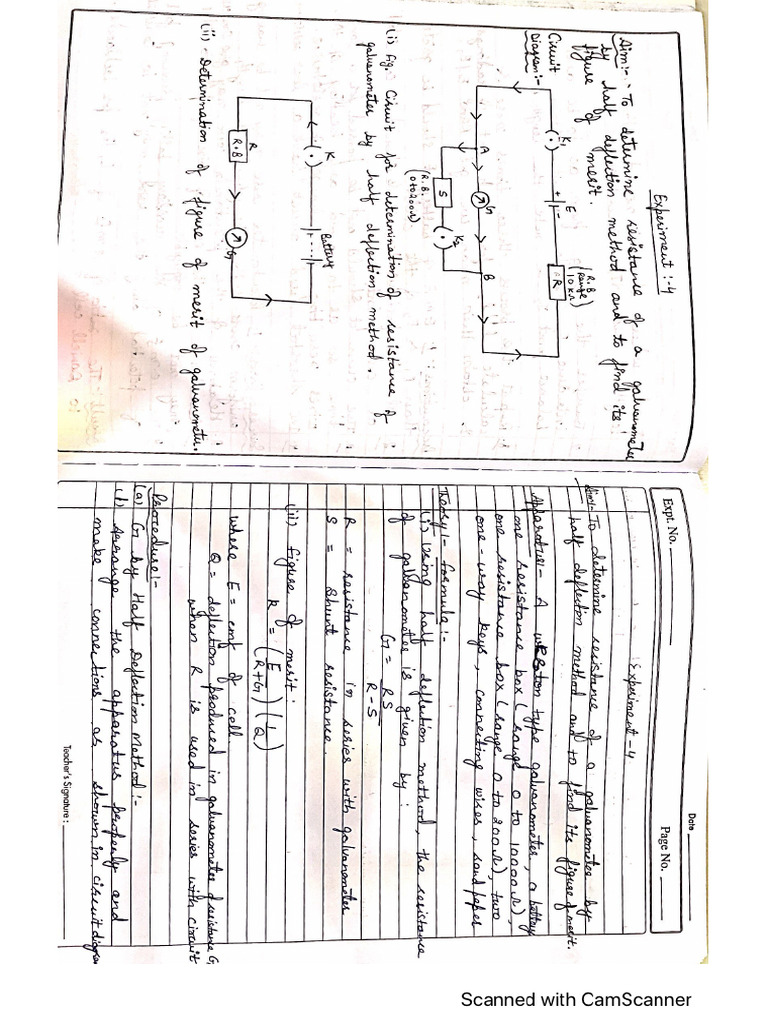 Experiment :- 4
Aim:- To determine resistance of a galvanometer
by half deflection method and to find its
figure of merit.
Circuit
Diagram:-
K1
E
+ -
R
R.B.
Range
10 KΩ
A
G
B
S
K2
(R.B.
0 to 200Ω)
(i) fig. Circuit for determination of resistance of
galvanometer by half deflection method.
K
Battery
R
R.B
G
(ii) - Determination of figure of merit of galvanometer.
Date
Expt. No.
Page No.
Experiment - 4
Aim:- To determine resistance of a galvanometer by
half deflection method and to find its figure of merit.
Apparatus:- A weston type galvanometer, a battery
one resistance box (range 0 to 10000 Ω),
one resistance box (range 0 to 200 Ω), two
one-way keys, connecting wires, sand paper
Theory:- formula:-
(i) Using half deflection method, the resistance
of galvanometer is given by :
G = RS
R-S
R = resistance in series with galvanometer
S = Shunt resistance.
(ii) figure of merit :
k = (E/R+G) (1/Q)
where E = emf of cell
Q = deflection produced in galvanometer of resistance G
when R is used in series with circuit
Procedure:-
(a) G by Half Deflection Method :-
(1) Arrange the apparatus properly and
make connections as shown in circuit diagram
Teacher's Signature :
Scanned with CamScanner